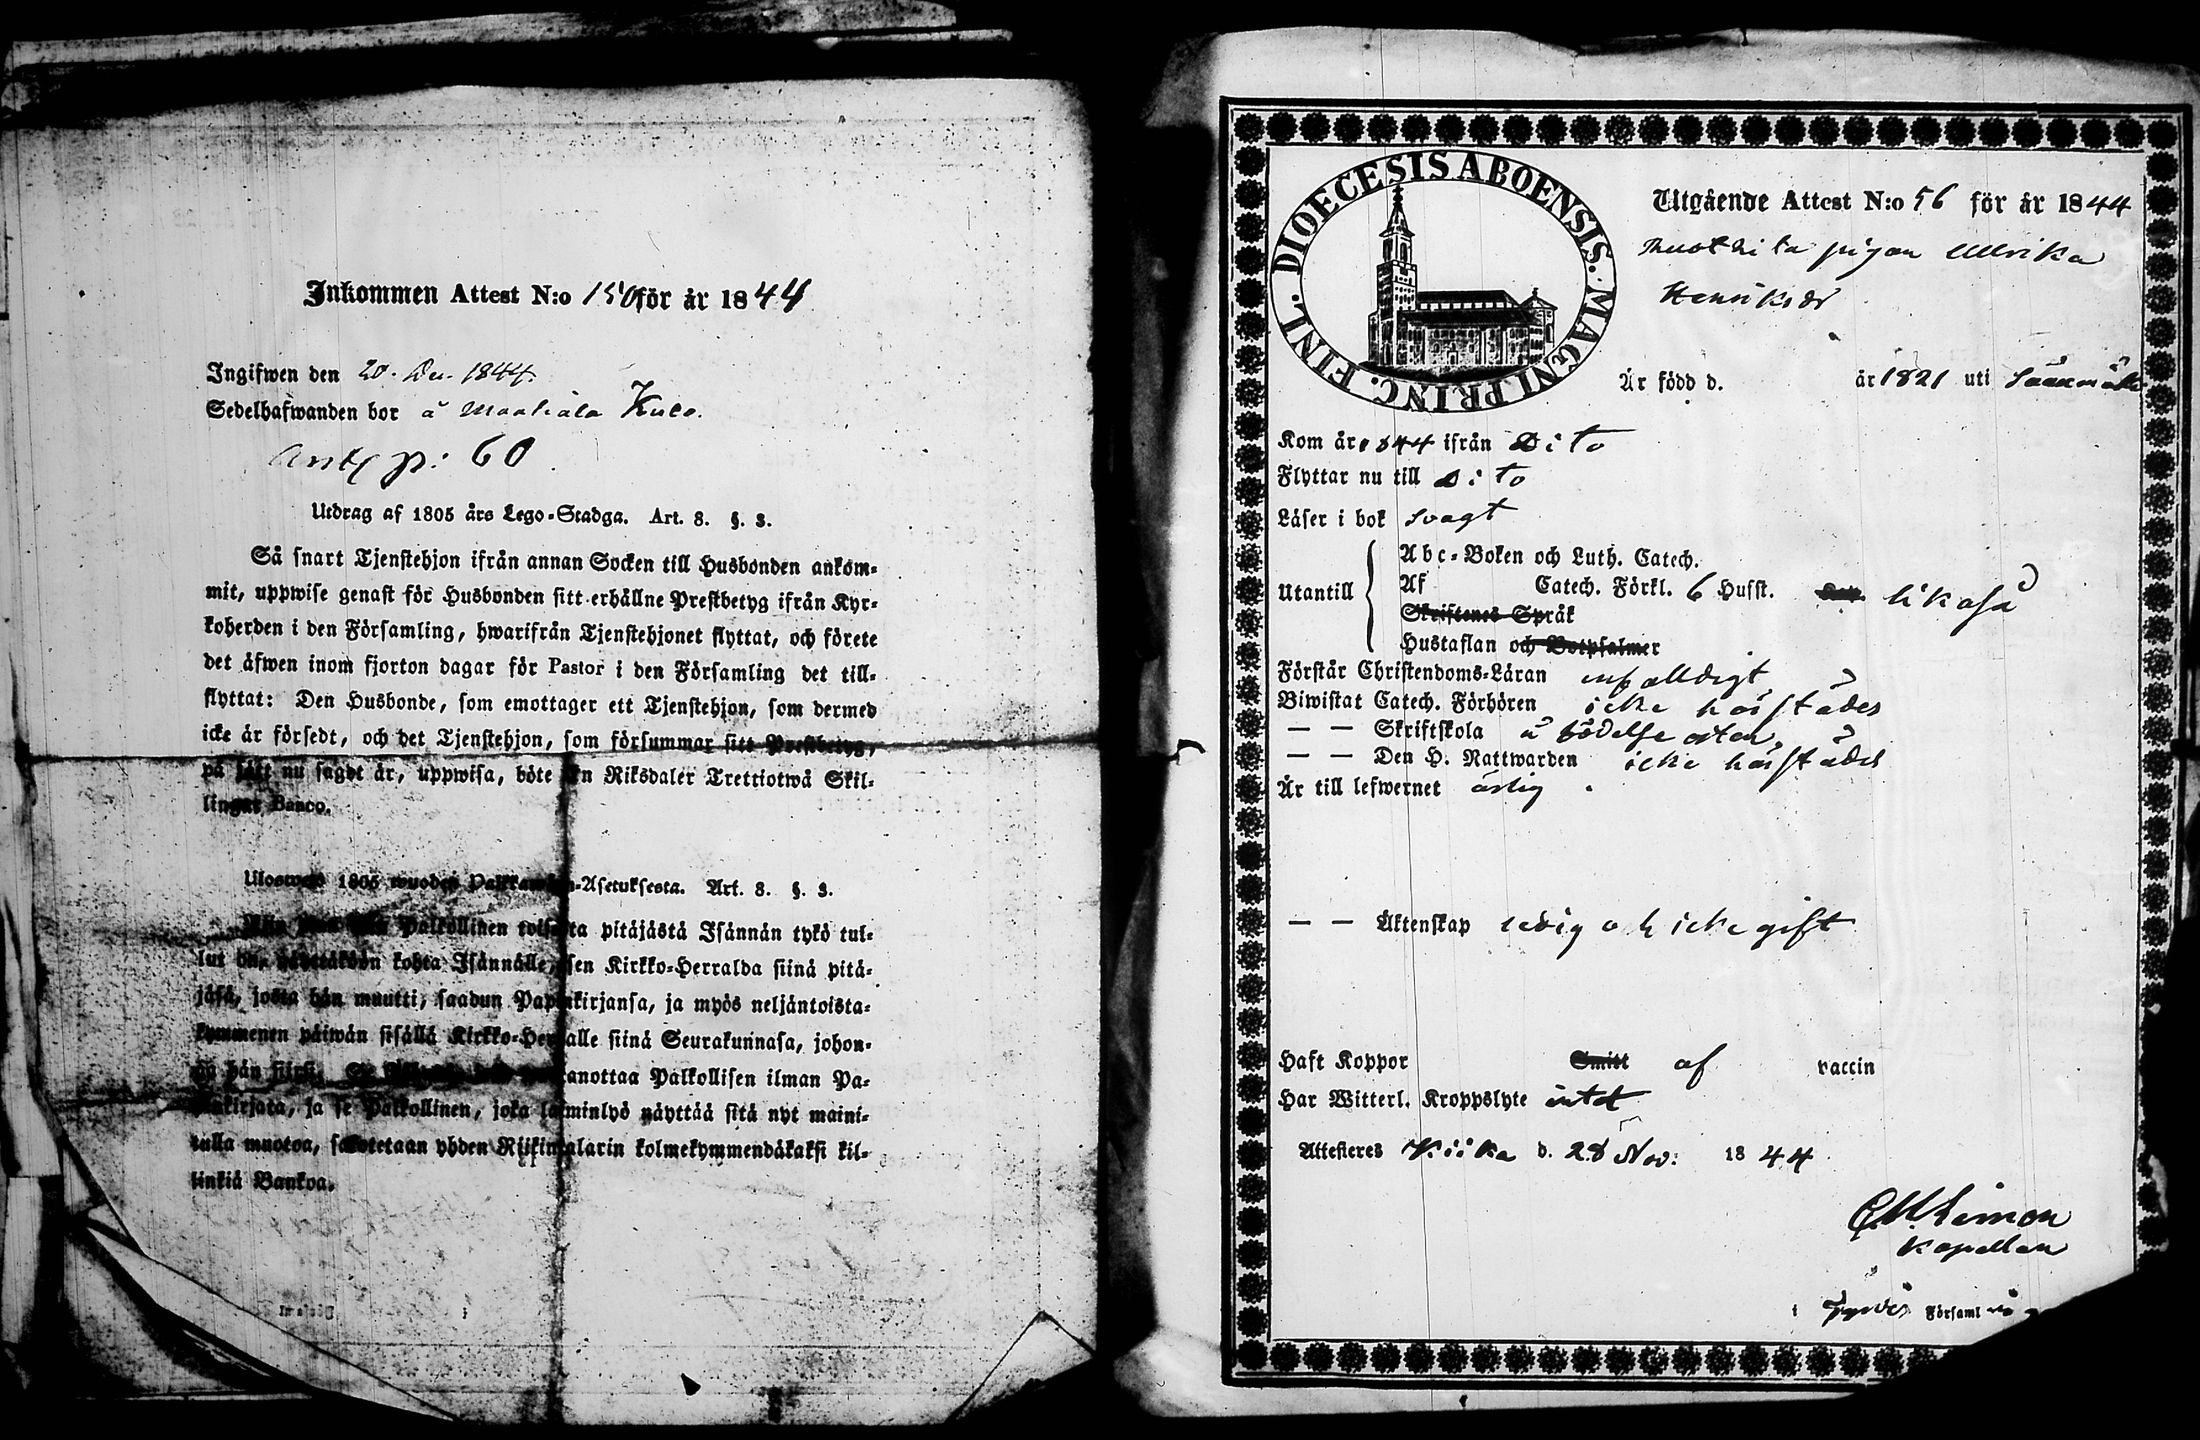 Inkommen Attest N:o 150 för år 1844
Ingifwen den 20. Dec. 1844.
Sedelhafwanden bor å
p: 60
Utdrag af 1805 års Lego-Stadga. Art. 8. §. 3.
Så snart Tjenstehjon ifrån annan Socken till Husbonden ankom-
mit, uppwise genast för Husbonden sitt erhållne Prestbetyg ifrån Kyr-
koherden i den Församling, hwarifrån Tjenstehjonet flyttat, och förete
det äfwen inom fjorton dagar för Pastor i den Församling det till-
flyttat: Den Husbonde, som emottager ett Tjenstehjon, som dermed
icke är försedt, och det Tjenstehjon, som försummar sitt Prestbetyg,
på sätt nu sagdt är, uppwisa, böte en Riksdaler Trettiotwå Skil-
lingar Banco.
Uloswetö 1805 wuoden Palkkawäen-Asetuksesta. Art. 8. §. 3.
Palkollinen toisesta pitäjästä Isännän tykö tul-
lut on, näyttäköön kohta Isännälle, sen Kirkko-Herralda siinä pitä-
jäsä, josta hän muutti, saadun Papinkirjansa, ja myös neljäntoista-
kymmenen päiwän sisällä Kirkko-Herralle siinä Seurakunnasa, johon-
ga hän siirsi. wastanottaa Palkollisen ilman Pa-
pinkirjata, ja se Palkollinen, joka laiminlyö näyttää sitä nyt maini-
tulla muotoa, sakotetaan yhden Riikintalarin kolmekymmendäkaksi kil-
linkiä Bankoa.
DIOECESIS ABOENSIS. MAGNI PRINC. FINL.
Utgående Attest N:o 56 för år 1844
pigan Ulrika
Henriksdr
Är född d. år 1821 uti Säänmäki
Kom år 1844 ifrån Dito
Flyttar nu till Dito
Läser i bok svagt
Utantill
Abc-Boken och Luth. Catech.
Af Catech. Förkl. 6 Hufst. Kap. likaså
Skriftenes Språk
Hustaflan och Botpsalmer
Förstår Christendoms-Läran enfalldigt
Biwistat Catech. Förhören icke härstädes
— — Skriftskola å födelse orten
— — Den H. Nattwarden icke härstädes
Är till lefwernet ärlig.
— — Äktenskap ledig och icke gift
Haft Koppor Smitt af vaccin
Har Witterl. Kroppslyte intet
Attesteres Kiika d. 28 Nov: 1844
Limon
Kapellan
i Tyrvis Församl